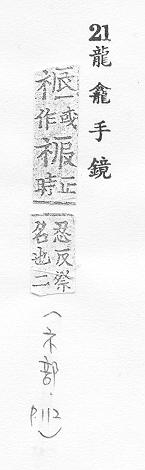 21龍龕手鏡
祳或作祳正時忍反祭名也二
(ネ部.P.112)